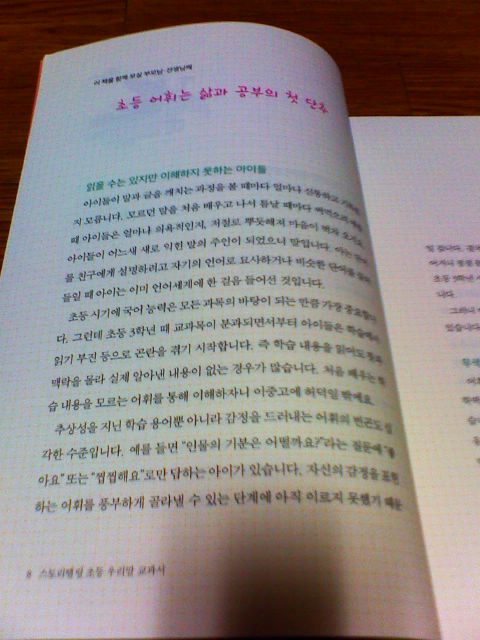 이 책을 함께 보실 부모님·선생님께
초등 어휘는 삶과 공부의 첫 단추
읽을 수는 있지만 이해하지 못하는 아이들
아이들이 말과 글을 깨치는 과정을 볼 때마다 얼마나 신통하고
지 모릅니다. 모르던 말을 처음 배우고 나서 틈날 때마다
때 아이들은 얼마나 의욕적인지, 저절로 뿌듯해져 마음이
아이들이 어느새 새로 익힌 말의 주인이 되었으니 말입니다. 아는
를 친구에게 설명하려고 자기의 언어로 묘사하거나 비슷한 단어를
들일 때 아이는 이미 언어세계에 한 걸음 들어선 것입니다.
초등 시기에 국어 능력은 모든 과목의 바탕이 되는 만큼 가장 중요합니
다. 그런데 초등 3학년 때 교과목이 분과되면서부터 아이들은 학습에서
읽기 부진 등으로 곤란을 겪기 시작합니다. 즉 학습 내용을 읽어도
맥락을 몰라 실제 알아낸 내용이 없는 경우가 많습니다. 처음 배우는 학
습 내용을 모르는 어휘를 통해 이해하자니 이중고에 허덕일 밖에요.
추상성을 지닌 학습 용어뿐 아니라 감정을 드러내는 어휘의 빈곤도 심
각한 수준입니다. 예를 들면 “인물의 기분은 어떨까요?”라는 질문에 “좋
아요” 또는 “찝찝해요”로만 답하는 아이가 있습니다. 자신의 감정을 표현
하는 어휘를 풍부하게 골라낼 수 있는 단계에 아직 이르지 못했기 때문
8 스토리텔링 초등 우리말 교과서
일 겁니다.
초등 3학년
니다.
그러나
있습니다